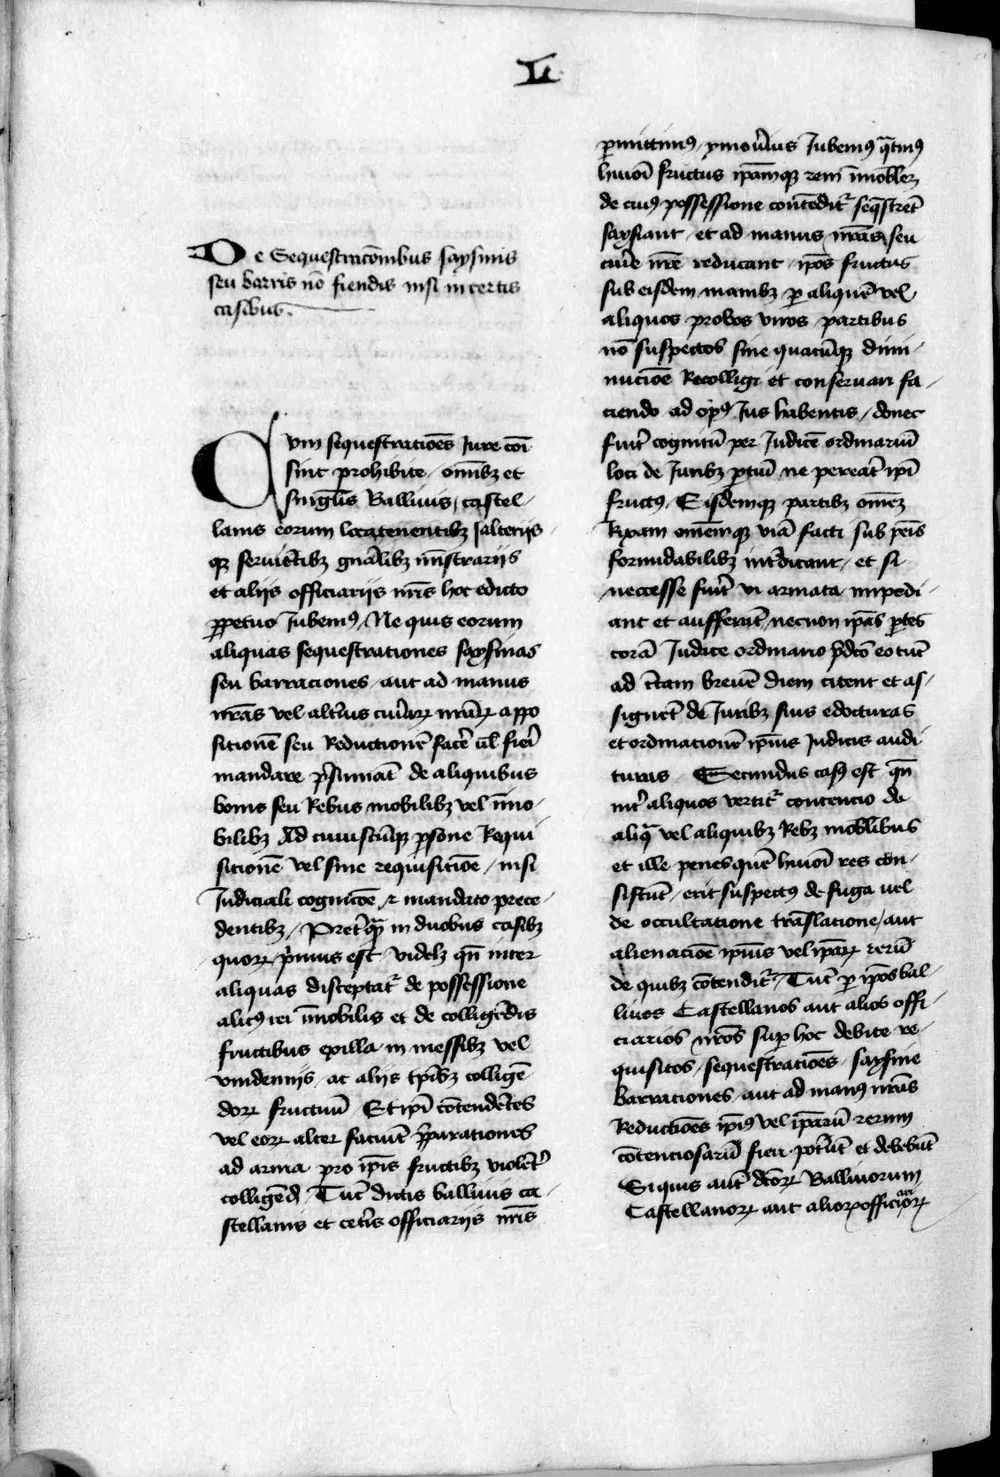 L
De Sequestracōnibus saysinis
seu barris nō fiendis nisi in certis
casibus.
Cum sequestratiōes Jure cōi
sint prohibite / omībꝫ et
singlīs Ballivis / castel-
lanis eorum locatenentibꝫ salterijs-
qꝫ serviētibꝫ gnālibꝫ mīstrariis
et aliis officiariis nrīs hoc edicto
ꝑpetuo Jubemꝰ / Ne quis eorum
aliquas sequestrationes saysinas
seu barraciones aut ad manus
nrās vel altīus cuīꝝ nrāꝝ appo
sitionē seu Reductionē facē ūl fierī
mandare p̄sumāt de aliquibus
bonis seu Rebus mobilibꝫ vel īmo-
bilibꝫ Ad cuiuscūqꝫ ꝑsone Requi
sitionē vel sine requisitiōe / nisi
Judiciali cognicōe ⁊ mandato prece-
dentibꝫ / Pretꝗ̄ in duobus casibꝫ
quoꝝ p̄imus est videlꝫ qn̄ inter
aliquas disceptatᷣ de possessione
alicꝰ rei īmobilis et de colligēdis
fructibus ex illa in messibꝫ vel
vindemijs ac aliis tp̄ibꝫ colligē-
doꝝ fructuū Et ip̄i cōtendētes
vel eoꝝ alter faciūt p̄parationes
ad arma pro ip̄is fructibꝫ violētᷣ
colligēdꝭ / Tūc dictis ballivis ca-
stellanis et cetīs officiariis nrīs
ꝑmittimꝰ / ymovīius Jubemꝰ qͣtinꝰ
huiōi fructus ip̄amqꝫ rem īmobilē
de cuiꝰ possessione contēditᷣ seqͣstrēt
saysiant / et ad manus nrās seu
curīe nrē reducant / ip̄os fructus
sub eisdem manibꝫ ꝑ aliquē vel
aliquos probos viros partibus
nō suspectos sine quacūqꝫ dimi-
nuciōe Recolligi et conservari fa-
ciendo ad opꝰ Jus habentis / donec
fuīt cognitū per Judicē ordinariū
loci de Juribꝫ ꝑtiū ne pereāt ip̄i
fructꝰ / Eisdemqꝫ partibꝫ omēꝫ
Rixam omēmqꝫ viā facti sub penīs
formidabilibꝫ intᷣdicant / et si
necesse fuīt vi armata impedi-
ant et aufferāt / necnon ip̄as ꝑtes
corā Judice ordinario p̄dcō eo tūc
ad c̄tam brevē diem citent et as-
signēt de Juribꝫ suis edocturas
et ordinationē ip̄ius Judicis audi
turas / Secundus casꝰ est qn̄
intᷣ aliquos vertitᷣ contencio de
aliqͣ vel aliquibꝫ Rebꝫ mobīlibus
et ille penes quē huiōi res con-
sistūt / erit suspectꝰ de fuga vel
de occultatione trāslatione / aut
alienaciōe ip̄ius vel ip̄aꝝ rerū
de quibꝫ cōtenditᷣ / Tūc ꝑ ip̄os bal-
livos Castellanos aut alios offi-
ciarios nrōs suꝑ hoc debite re-
quisitos / sequestratiōes saysine
barrationes aut ad manꝰ nrās
Reductiōes ip̄iꝰ vel ip̄arū rerum
cōtenciosarū fieri potūt et debebūt
Si quis autē dcōꝝ Ballivorum
Castellanoꝝ aut alioꝝ officiarioꝝ